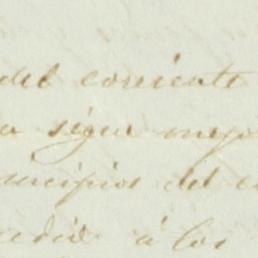 del corriente
a sigue mejo
incipios del
cedió á los